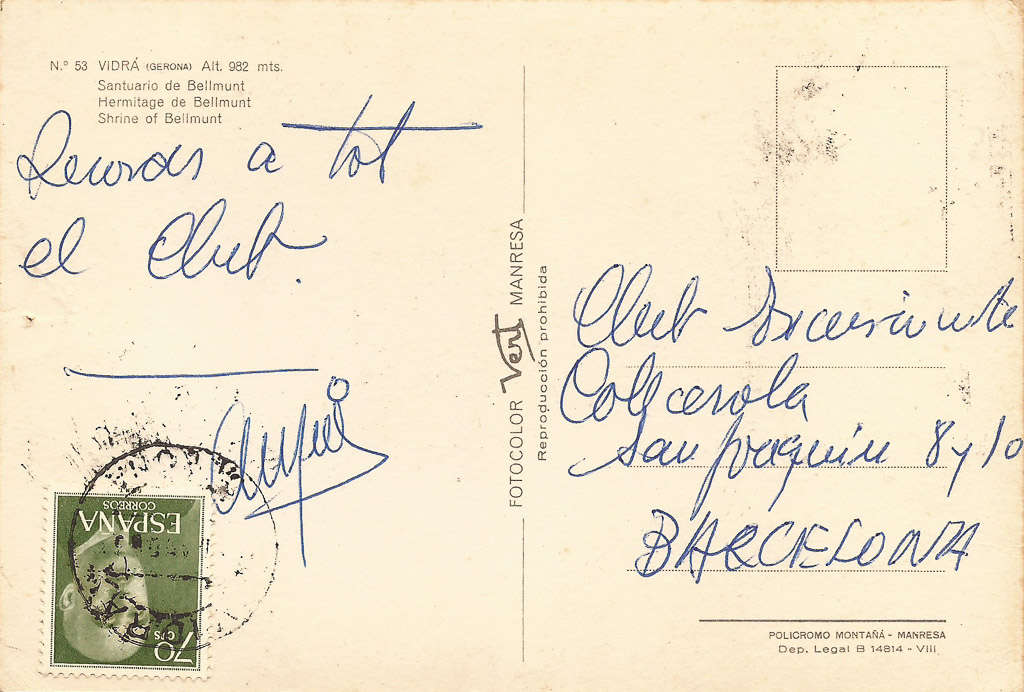 N.º 53 VIDRÁ (GERONA) Alt. 982 mts.
Santuario de Bellmunt
Hermitage de Bellmunt
Shrine of Bellmunt
Records a tot
el Club.
ESPAÑA
CORREOS
70 CTS
FOTOCOLOR Vert MANRESA
Reproducción prohibida
Club Excursionista
Collcerola
San Joaquin 8 y 10
BARCELONA
POLICROMO MONTAÑÁ - MANRESA
Dep. Legal B 14814 - VIII